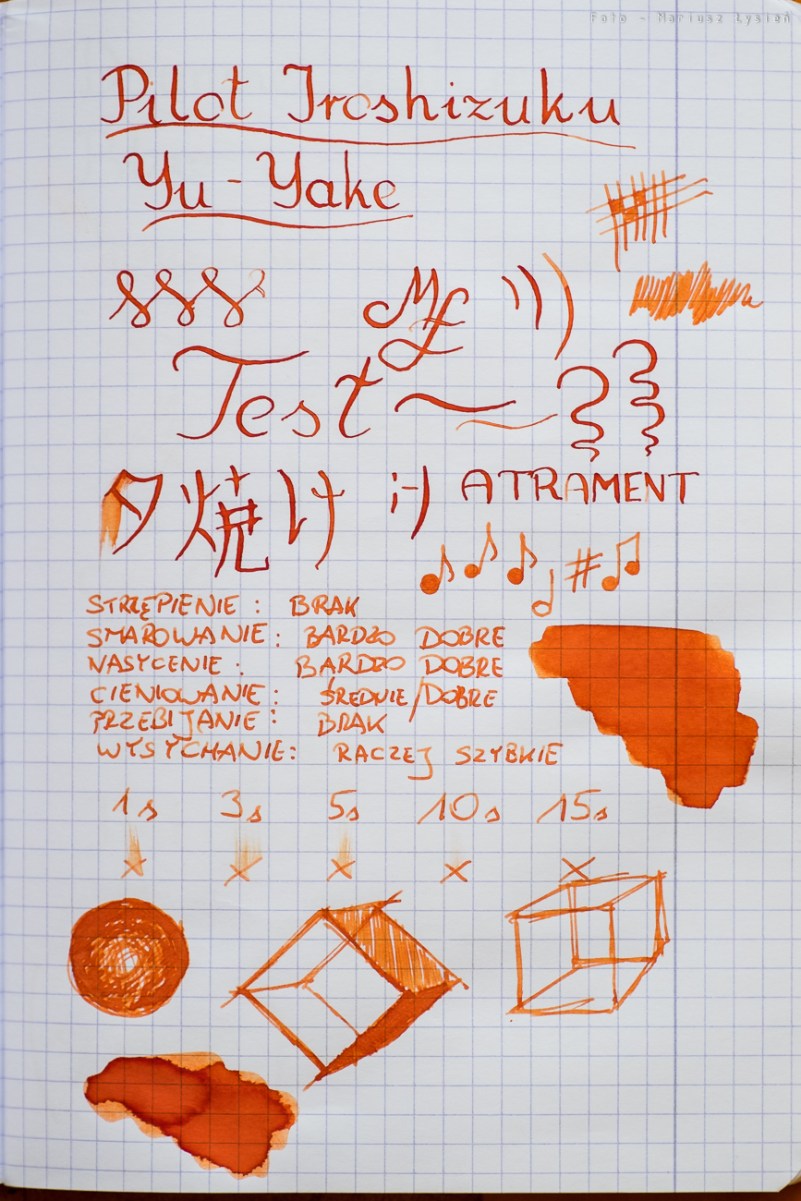 Foto - Mariusz Łysień
Pilot Iroshizuku
Yu-Yake
Test ~
夕焼け ;-) ATRAMENT
STRZĘPIENIE: BRAK
SMAROWANIE: BARDZO DOBRE
NASYCENIE: BARDZO DOBRE
CIENIOWANIE: ŚREDNIE/DOBRE
PRZEBIJANIE: BRAK
WYSYCHANIE: RACZEJ SZYBKIE
1s 3s 5s 10s 15s
x x x x x